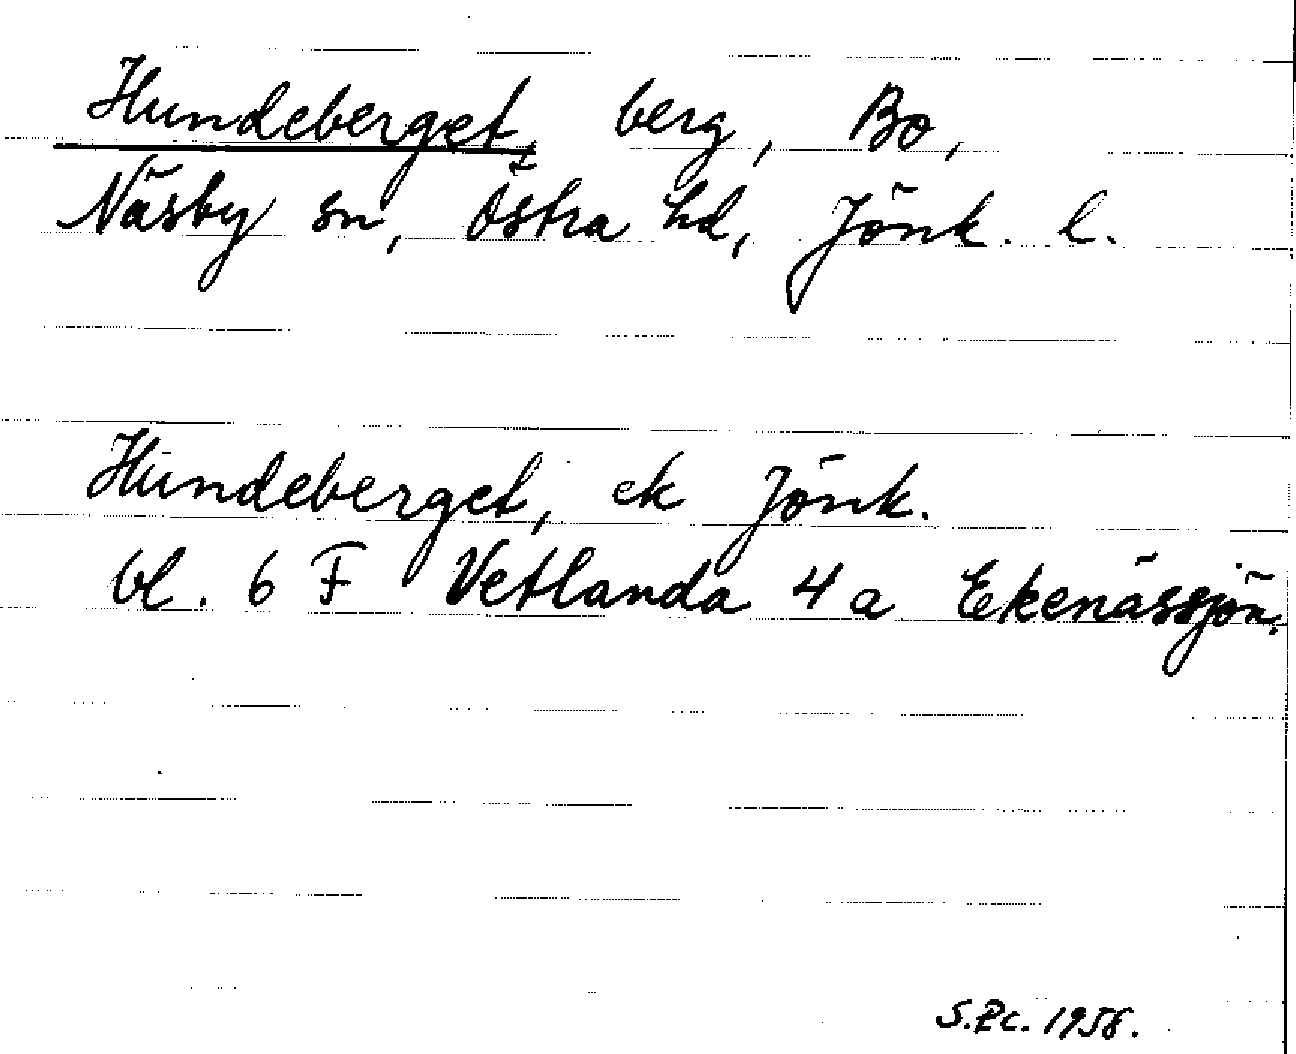 Hundeberget, berg, Bo,
Näsby sn, Östra hd, Jönk. l.
Hundeberget, ek Jönk.
bl. 6 F Vetlanda 4 a Ekenässjön.
1958.